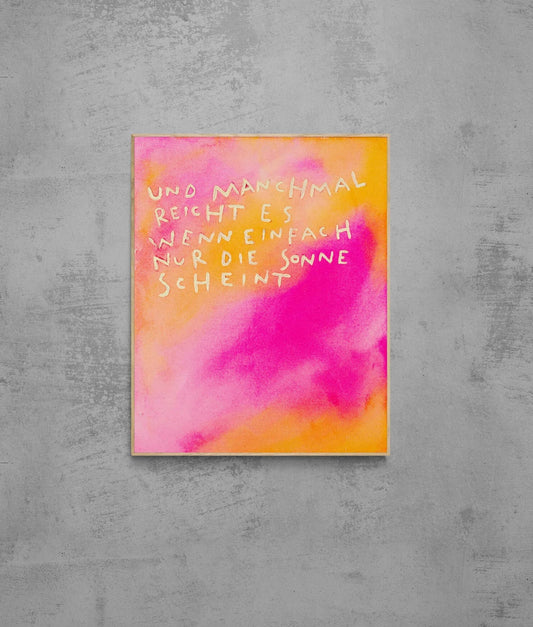 UND MANCHMAL
REICHT ES
WENN EINFACH
NUR DIE SONNE
SCHEINT